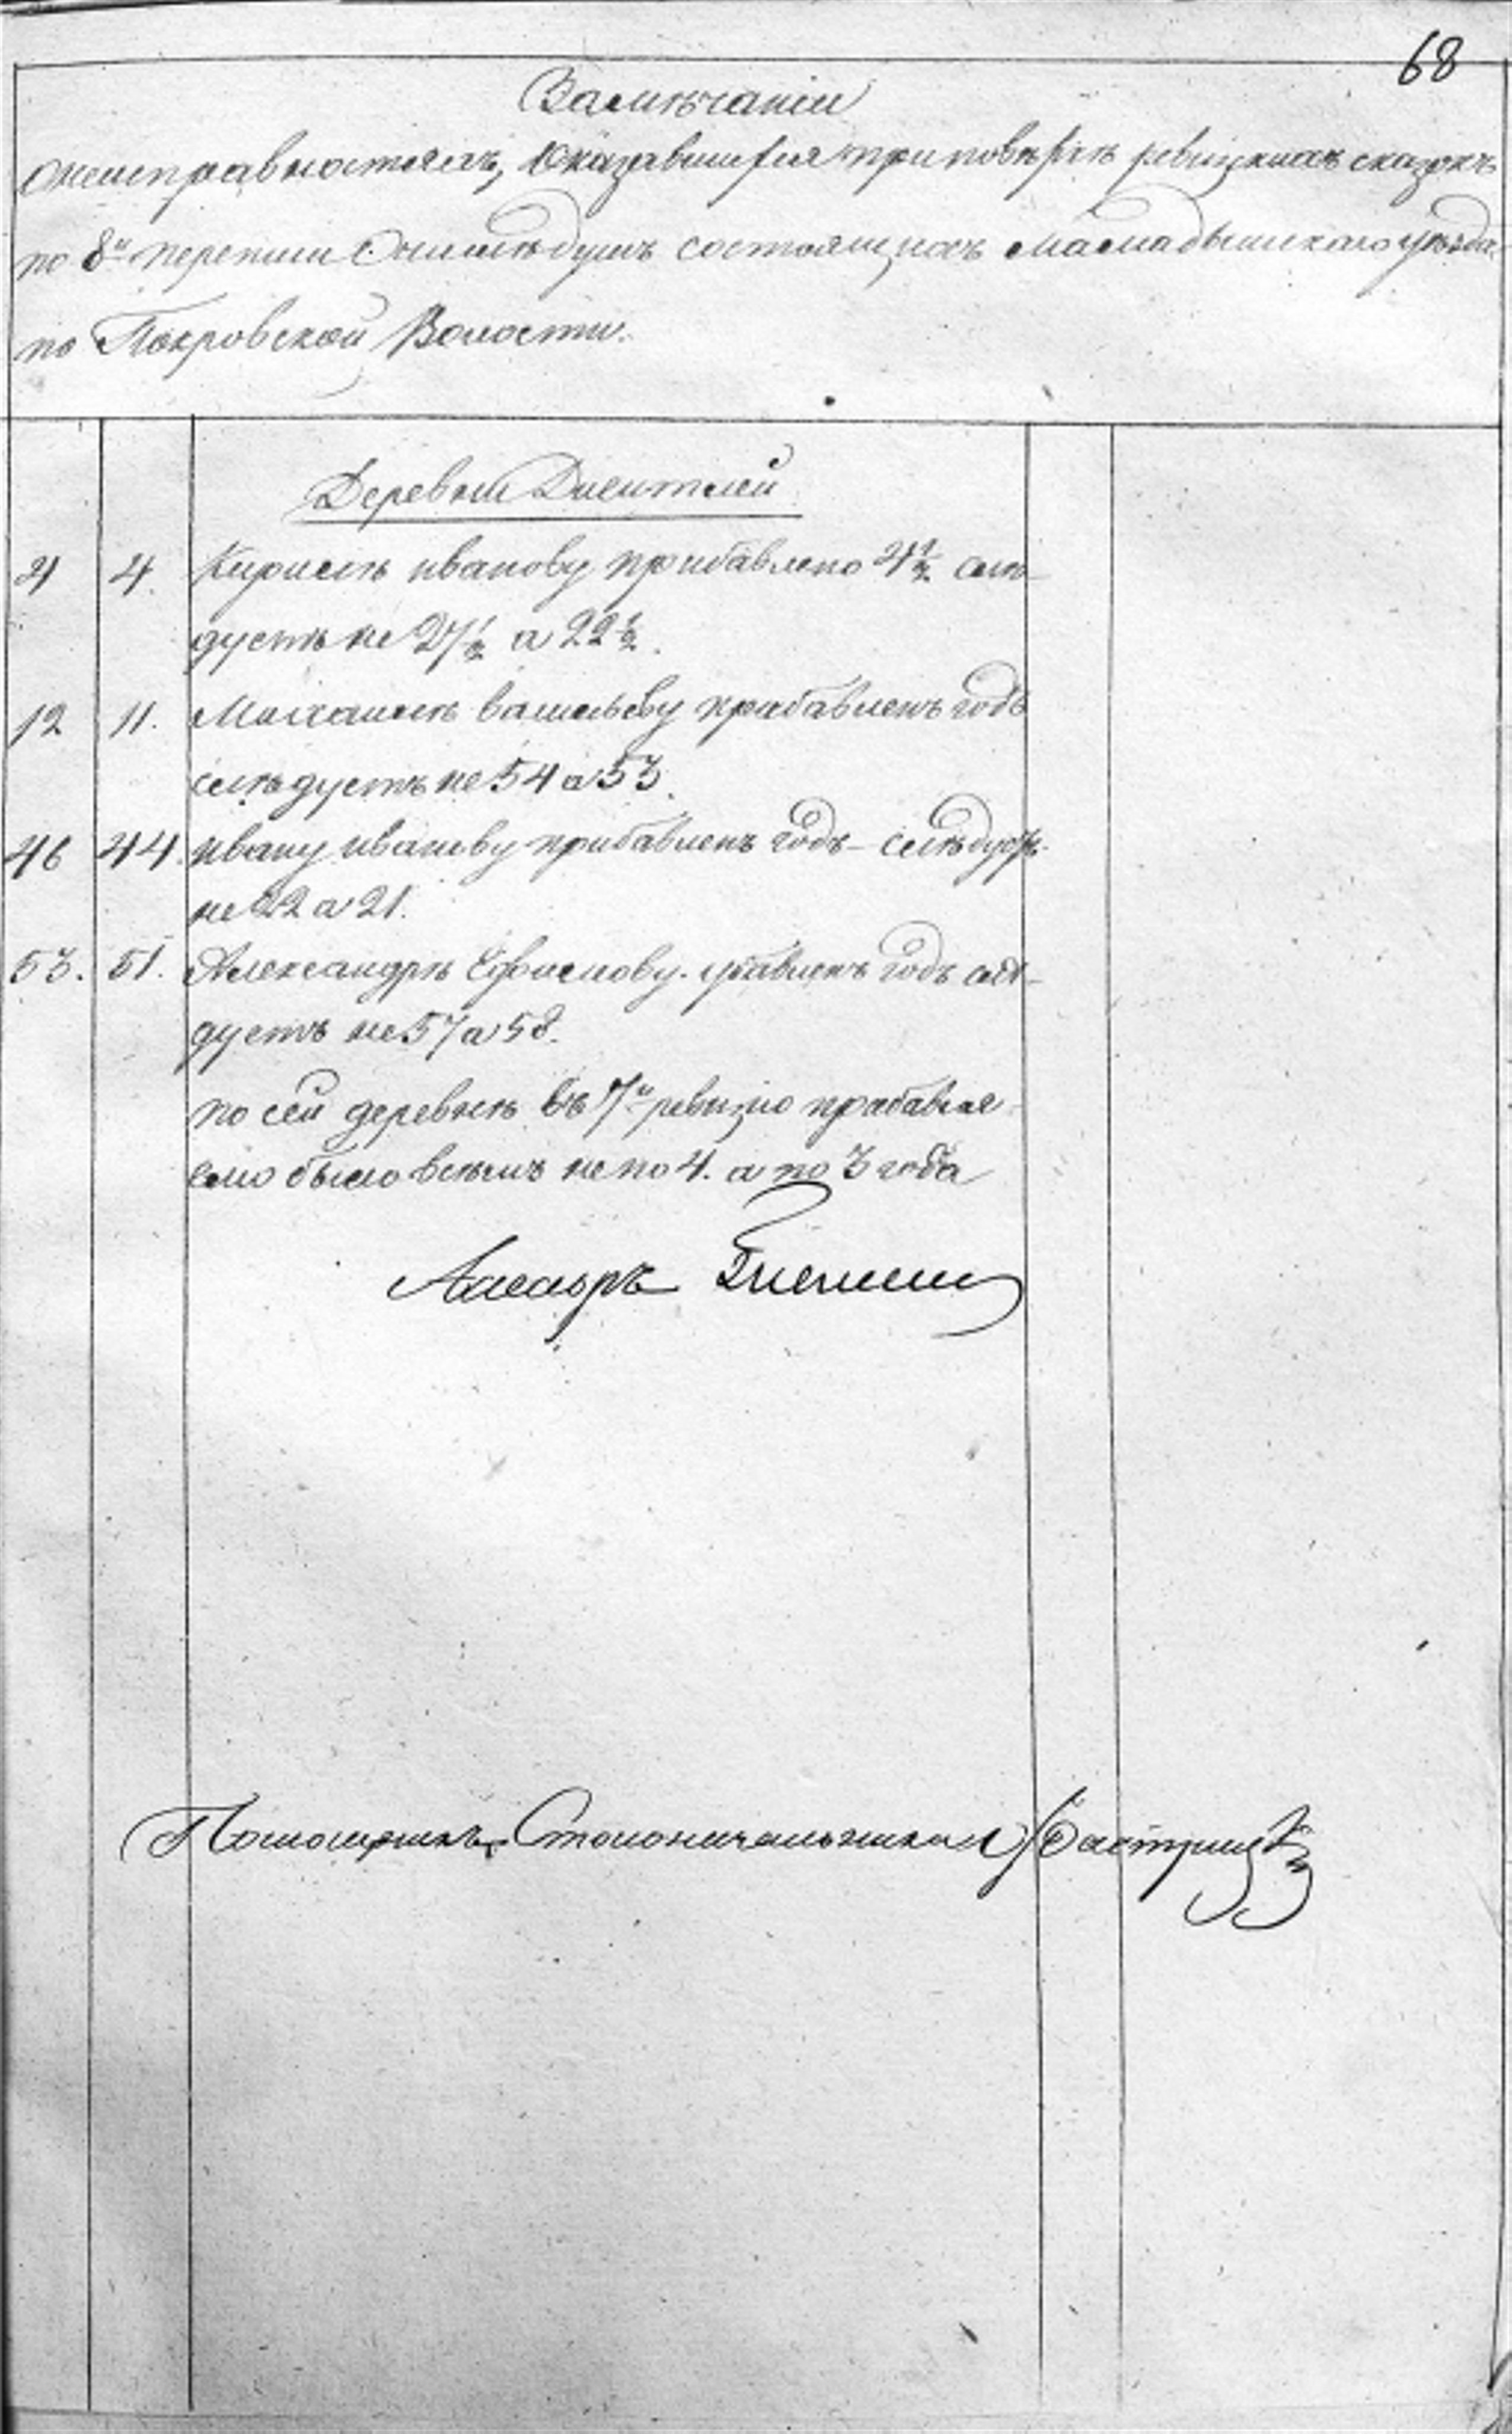 68
Замѣчаніи
онеисправностяхъ, Оказавшихся приповѣркѣ ревизкихъ сказокъ
по 8й переписи Очислѣ душъ состоящихъ Мамадышскаго уѣзда
по Покровской Волости.
Деревни
4 4. Кирилѣ иванову прибавлено 4 1/2 слѣ-
дуетъ не 27 1/2 а 22 1/2.
12 11. Михаилѣ васильеву прибавленъ годъ
слѣдуетъ не 54 а 53.
46 44. ивану иванову прибавленъ годъ слѣдуетъ
не 22 а 21.
53. 51. Александрѣ Ефимову. убавленъ годъ слѣ-
дуетъ не 57 а 58.
по сей деревнѣ въ 7й ревизію прибавля-
емо было всѣмъ не по 4. а по 3 года
Асесоръ
Помощникъ Столоначальника